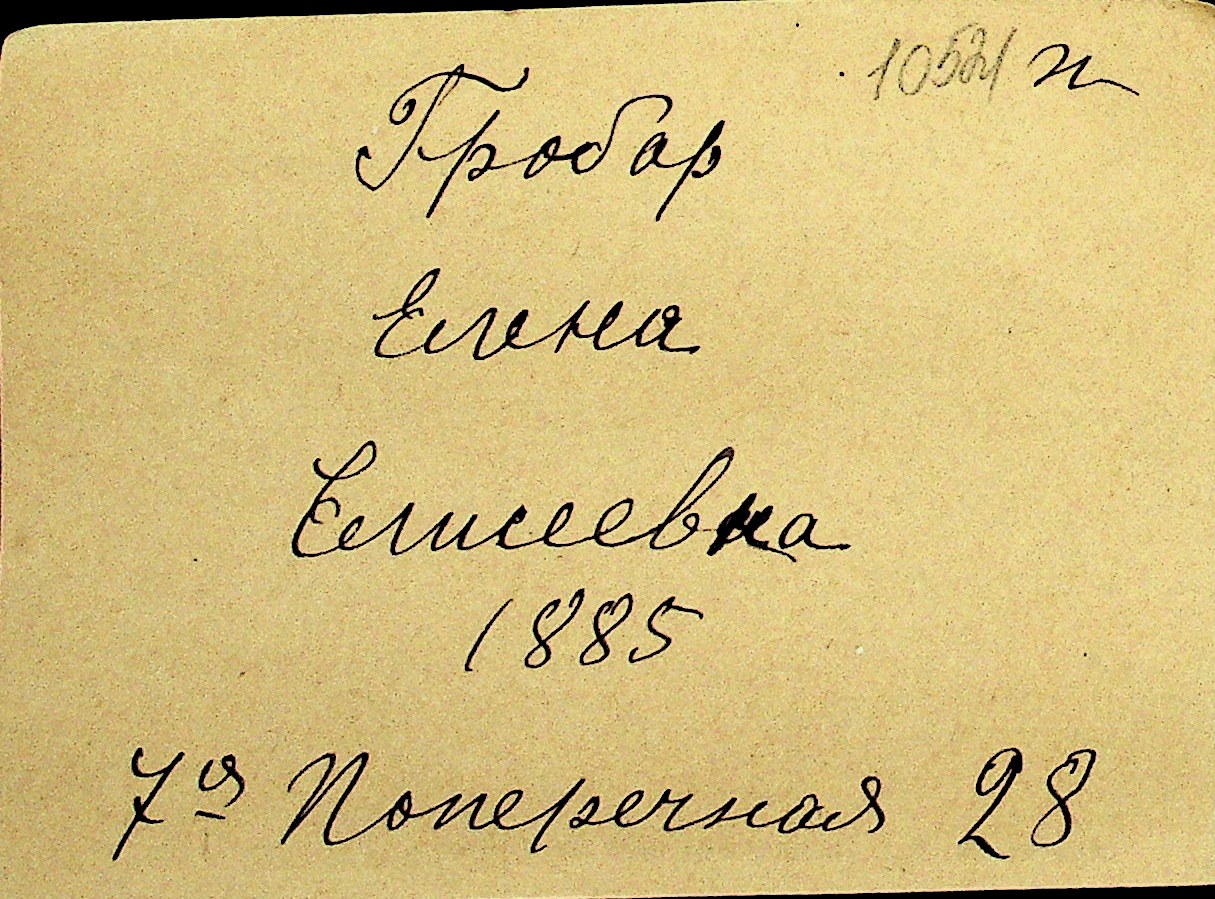 Гробар
Елена
Елисеевна
1885
7я Поперечная 28